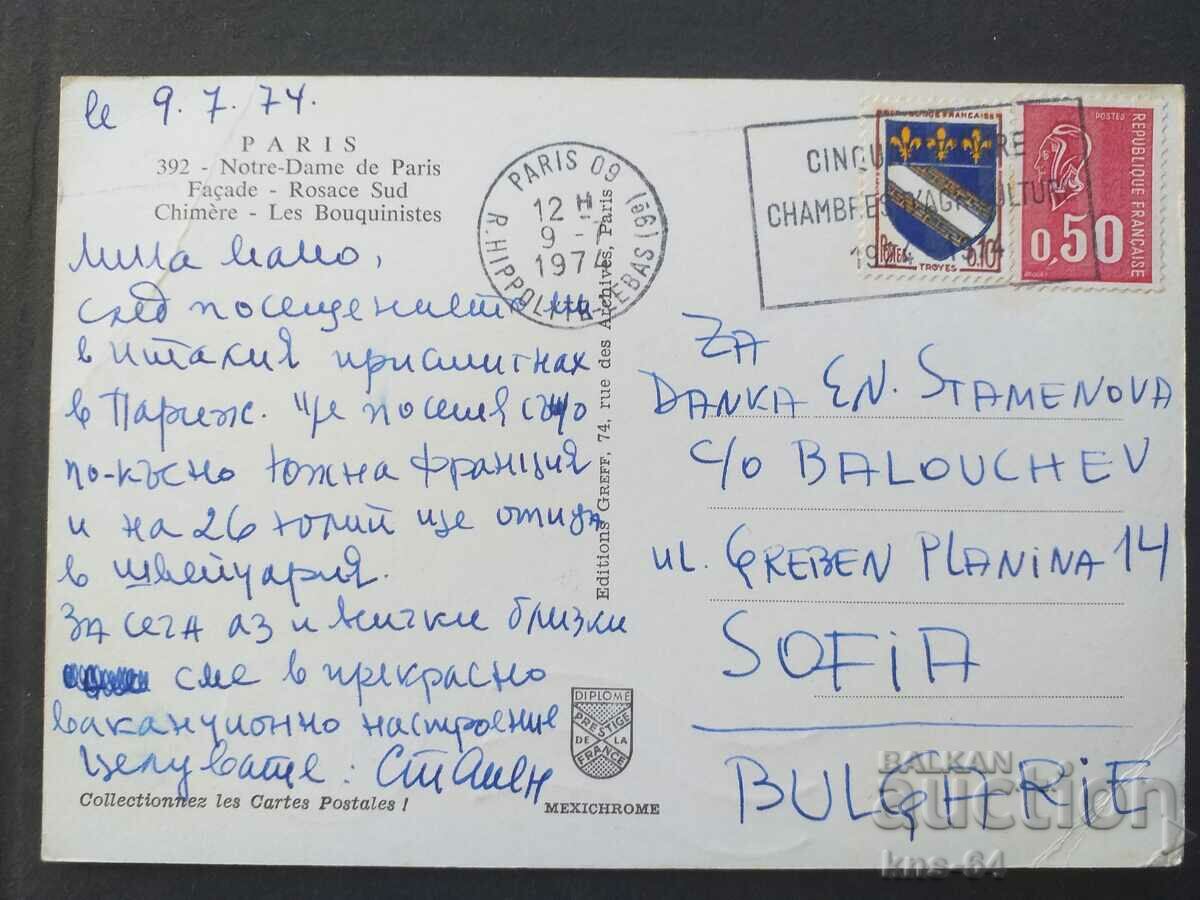 le 9.7.74.
PARIS
392 - Notre-Dame de Paris
Façade - Rosace Sud
Chimère - Les Bouquinistes
Мила мамо,
след посещението ми
в Италия пристигнах
в Париж. Ще посетя също
по-късно Южна Франция
и на 26 юлий ще отида
в Швейцария.
За сега аз и всички близки
сме в прекрасно
ваканционно настроение
Целувате: Стамен
Collectionnez les Cartes Postales !
PARIS 09
R. HIPPOLYTE-LEBAS (9e)
12 H
9 -
197
Editions GREFF, 74, rue des Archives, Paris
DIPLOME
PRESTIGE
DE LA
FRANCE
MEXICHROME
CINQU RE
CHAMBRES D'AGRICULTUR
19 4
REPUBLIQUE FRANÇAISE
POSTES
0,10F
TROYES
POSTES
REPUBLIQUE FRANÇAISE
0,50
ZA
DANKA EN. STAMENOVA
c/o BALOUCHEV
ul. GREBEN PLANINA 14
SOFIA
BULGARIE
BALKAN
auction
kns-64